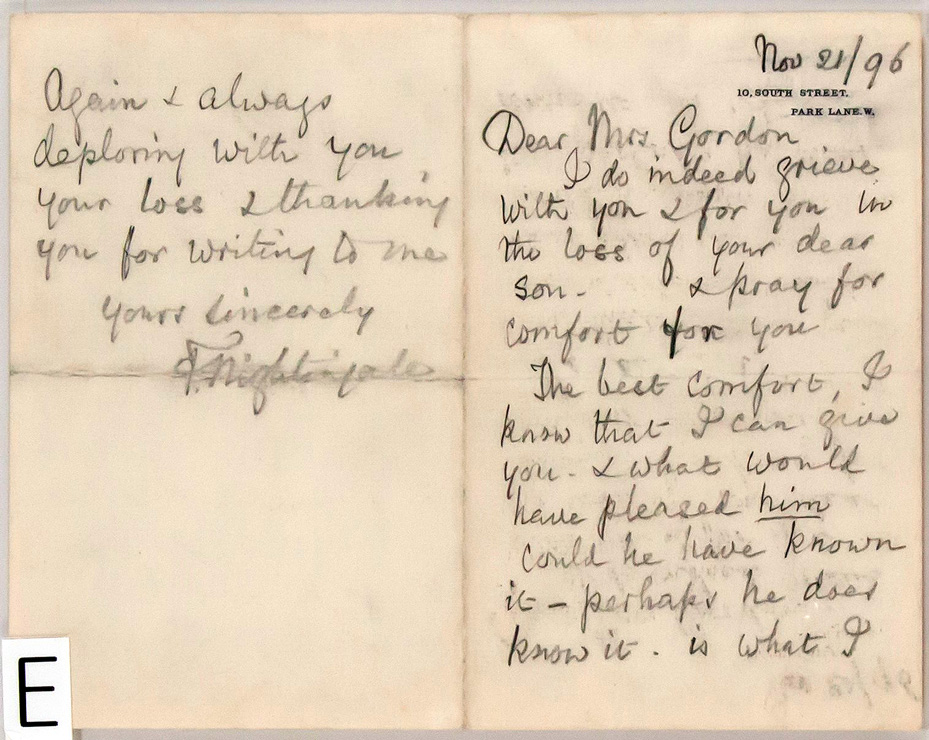 Nov 21/96
10, SOUTH STREET,
PARK LANE. W.
Dear Mrs Gordon
I do indeed grieve
with you & for you in
the loss of your dear
son - & pray for
comfort for you
The best comfort, I
know that I can give
you - & what would
have pleased him
could he have known
it - perhaps he does
know it - is what I
Again & always
deploring with you
your loss & thanking
you for writing to me
yours sincerely
F. Nightingale
E